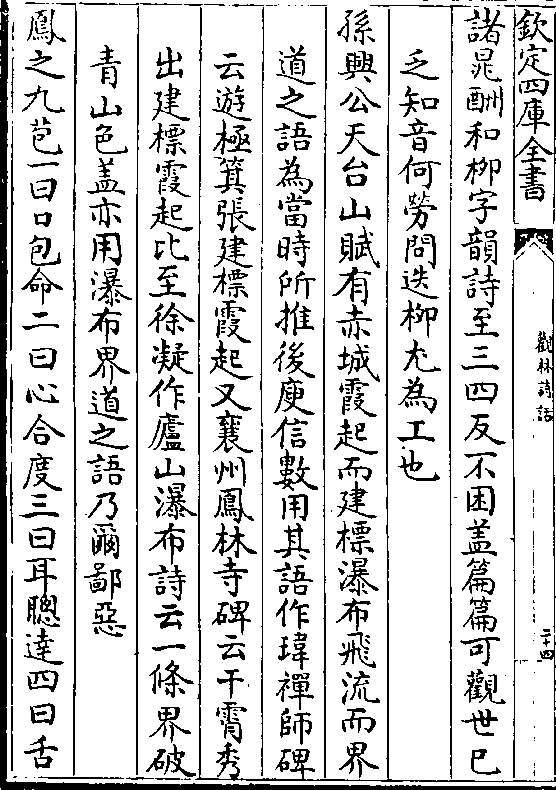 欽定四庫全書
觀林詩話
二十四
諸晁酬和柳字韻詩至三四反不困盖篇篇可觀世已
乏知音何勞問迭柳尤為工也
孫興公天台山賦有赤城霞起而建標瀑布飛流而界
道之語為當時所推後庾信數用其語作瑋禪師碑
云遊極箕張建標霞起又襄州鳳林寺碑云干霄秀
出建標霞起比至徐凝作廬山瀑布詩云一條界破
青山色盖亦用瀑布界道之語乃爾鄙惡
鳳之九苞一曰口包命二曰心合度三曰耳聰達四曰舌